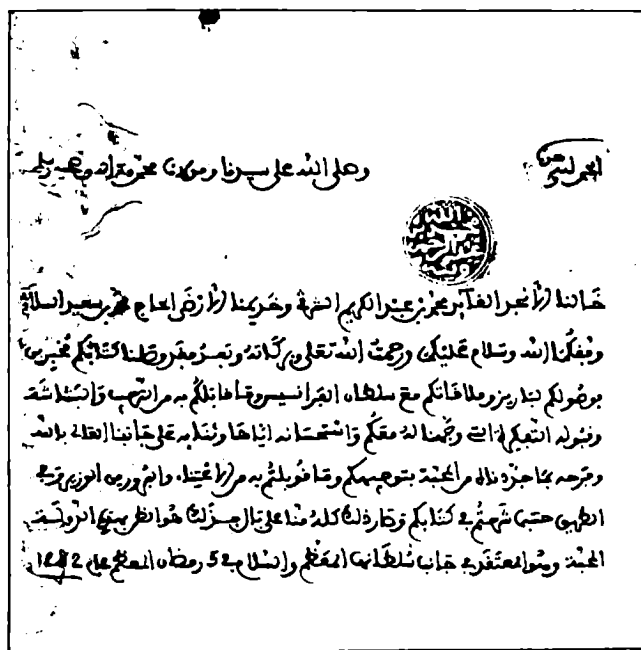 الحمد لله وحده
وصلى الله على سيدنا ومولانا محمد وءاله وصحبه وسلم
خالنا الأنجد القائد محمد بن عبد الكريم الشرقي وخديمنا الأرضى الحاج محمد بن سعيد السلاوي
وفقكما الله وسلام عليكم ورحمت الله تعلى وبركاته وبعد فقد وصلنا كتابكم مخبرين
بوصولكم لباريز وملاقاتكم مع سلطان الفرانسيس وما قابلكم به من الترحيب والبشاشة
وقبوله الهدية التي وجهنا له معكم واستحسانه اياها وثنايه على جانبنا العالي بالله
وفرحه بما جزه ذلك من المحبة بتوجيهكم وما قوبلتم به من الاعتناء
الطريق حسبما شرحتم في كتابكم وصار ذلك كله منا على بال هو الظن بهذه الدولة
المحبة وهو المعتقد في جانب سلطانها المعظم والسلام في 5 رمضان المعظم عام 1282